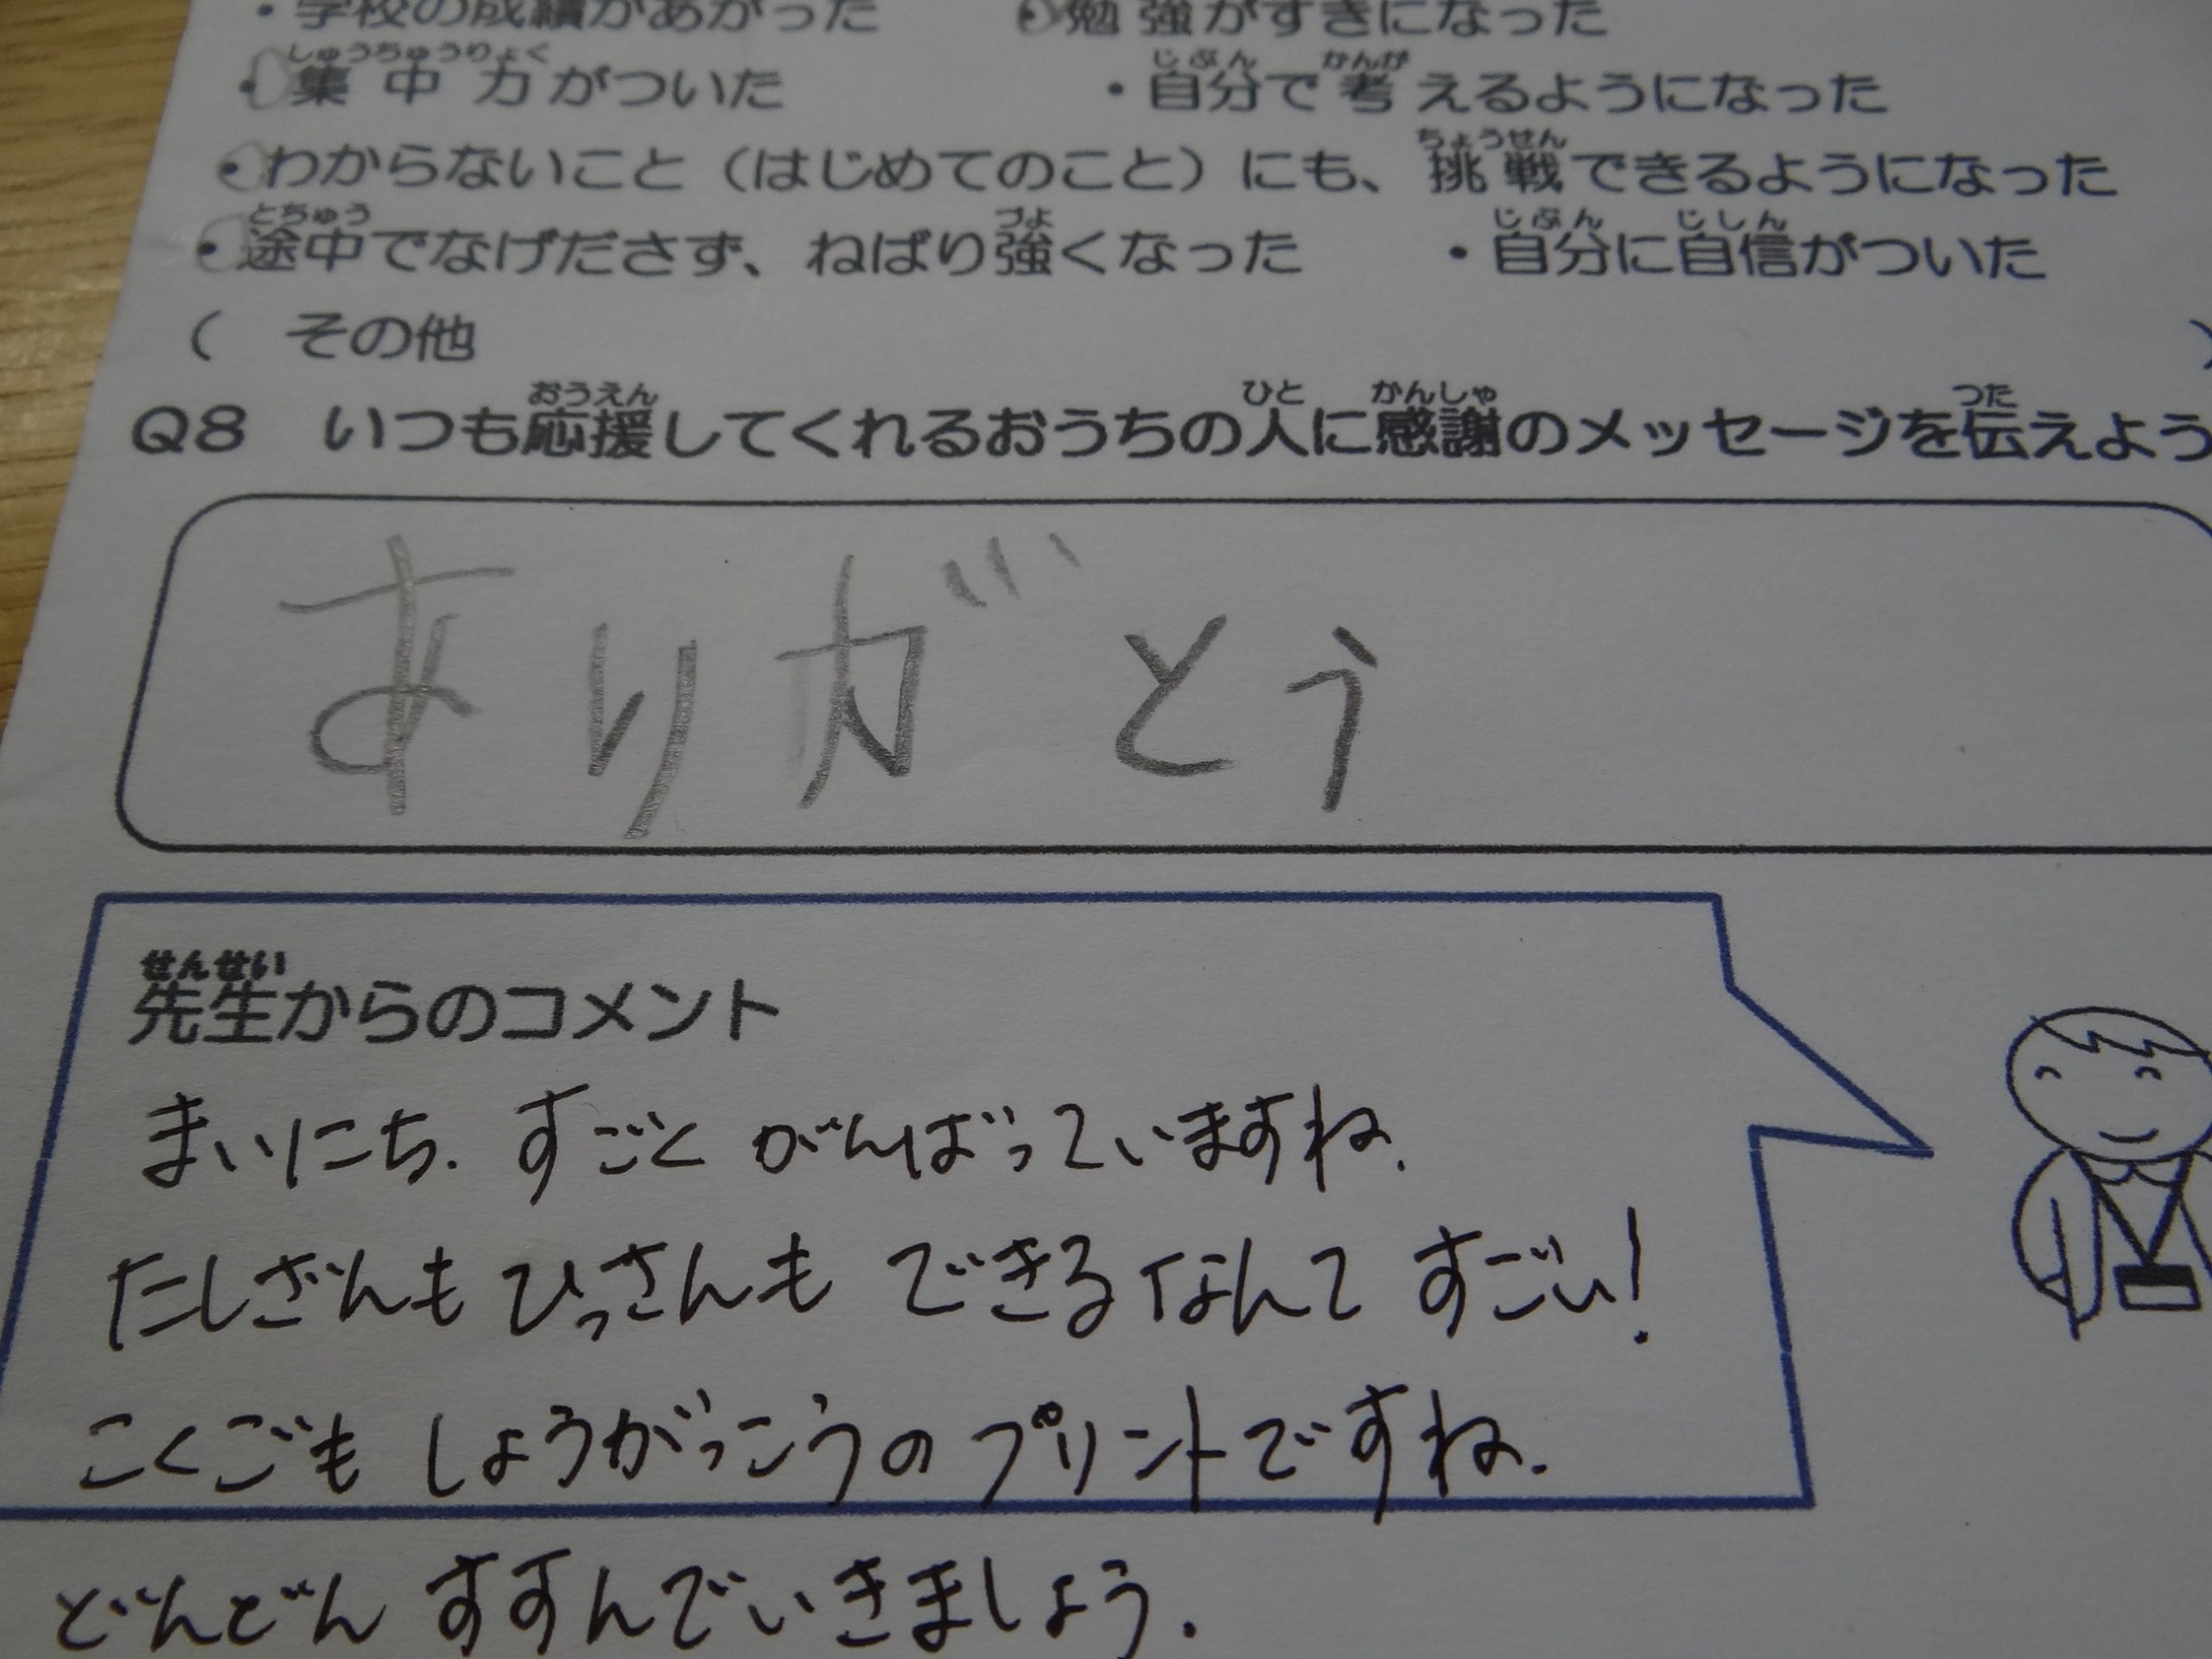 ・学校の成績があがった　・勉強がすきになった
しゅうちゅうりょく　じぶん　かんが
・集中力がついた　・自分で考えるようになった
ちょうせん
・わからないこと（はじめてのこと）にも、挑戦できるようになった
とちゅう　づよ　じぶん　じしん
・途中でなげださず、ねばり強くなった　・自分に自信がついた
（　その他　）
おうえん　ひと　かんしゃ　つた
Q8　いつも応援してくれるおうちの人に感謝のメッセージを伝えよう
ありがとう
せんせい
先生からのコメント
まいにち、すごく がんばっていますね。
たしざんも ひっさんも できるなんて すごい！
こくごも しょうがっこうの プリントですね。
どんどん すすんでいきましょう。